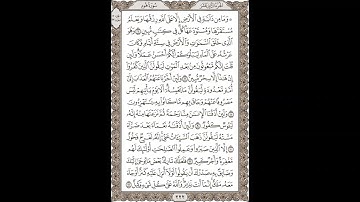 الجزء الثاني عشر سورة هود
۞ وَمَا مِن دَآبَّةٍ فِي ٱلْأَرْضِ إِلَّا عَلَى ٱللَّهِ رِزْقُهَا وَيَعْلَمُ
مُسْتَقَرَّهَا وَمُسْتَوْدَعَهَا كُلٌّ فِي كِتَٰبٍ مُّبِينٍ ٦ وَهُوَ
ٱلَّذِي خَلَقَ ٱلسَّمَٰوَٰتِ وَٱلْأَرْضَ فِي سِتَّةِ أَيَّامٍ وَكَانَ
عَرْشُهُۥ عَلَى ٱلْمَآءِ لِيَبْلُوَكُمْ أَيُّكُمْ أَحْسَنُ عَمَلًا وَلَئِن
قُلْتَ إِنَّكُم مَّبْعُوثُونَ مِنۢ بَعْدِ ٱلْمَوْتِ لَيَقُولَنَّ ٱلَّذِينَ كَفَرُوٓا۟
إِنْ هَٰذَآ إِلَّا سِحْرٌ مُّبِينٌ ٧ وَلَئِنْ أَخَّرْنَا عَنْهُمُ ٱلْعَذَابَ إِلَىٰٓ
أُمَّةٍ مَّعْدُودَةٍ لَّيَقُولُنَّ مَا يَحْبِسُهُۥٓ أَلَا يَوْمَ يَأْتِيهِمْ لَيْسَ
مَصْرُوفًا عَنْهُمْ وَحَاقَ بِهِم مَّا كَانُوا۟ بِهِۦ يَسْتَهْزِءُونَ ٨
وَلَئِنْ أَذَقْنَا ٱلْإِنسَٰنَ مِنَّا رَحْمَةً ثُمَّ نَزَعْنَٰهَا مِنْهُ إِنَّهُۥ
لَيَـُٔوسٌ كَفُورٌ ٩ وَلَئِنْ أَذَقْنَٰهُ نَعْمَآءَ بَعْدَ ضَرَّآءَ
مَسَّتْهُ لَيَقُولَنَّ ذَهَبَ ٱلسَّيِّـَٔاتُ عَنِّيٓ إِنَّهُۥ لَفَرِحٌ فَخُورٌ
١٠ إِلَّا ٱلَّذِينَ صَبَرُوا۟ وَعَمِلُوا۟ ٱلصَّٰلِحَٰتِ أُو۟لَٰٓئِكَ لَهُم
مَّغْفِرَةٌ وَأَجْرٌ كَبِيرٌ ١١ فَلَعَلَّكَ تَارِكٌۢ بَعْضَ مَا يُوحَىٰٓ إِلَيْكَ
وَضَآئِقٌۢ بِهِۦ صَدْرُكَ أَن يَقُولُوا۟ لَوْلَآ أُنزِلَ عَلَيْهِ كَنزٌ أَوْ جَآءَ
مَعَهُۥ مَلَكٌ إِنَّمَآ أَنتَ نَذِيرٌ وَٱللَّهُ عَلَىٰ كُلِّ شَيْءٍ وَكِيلٌ ١٢
٢٢٢